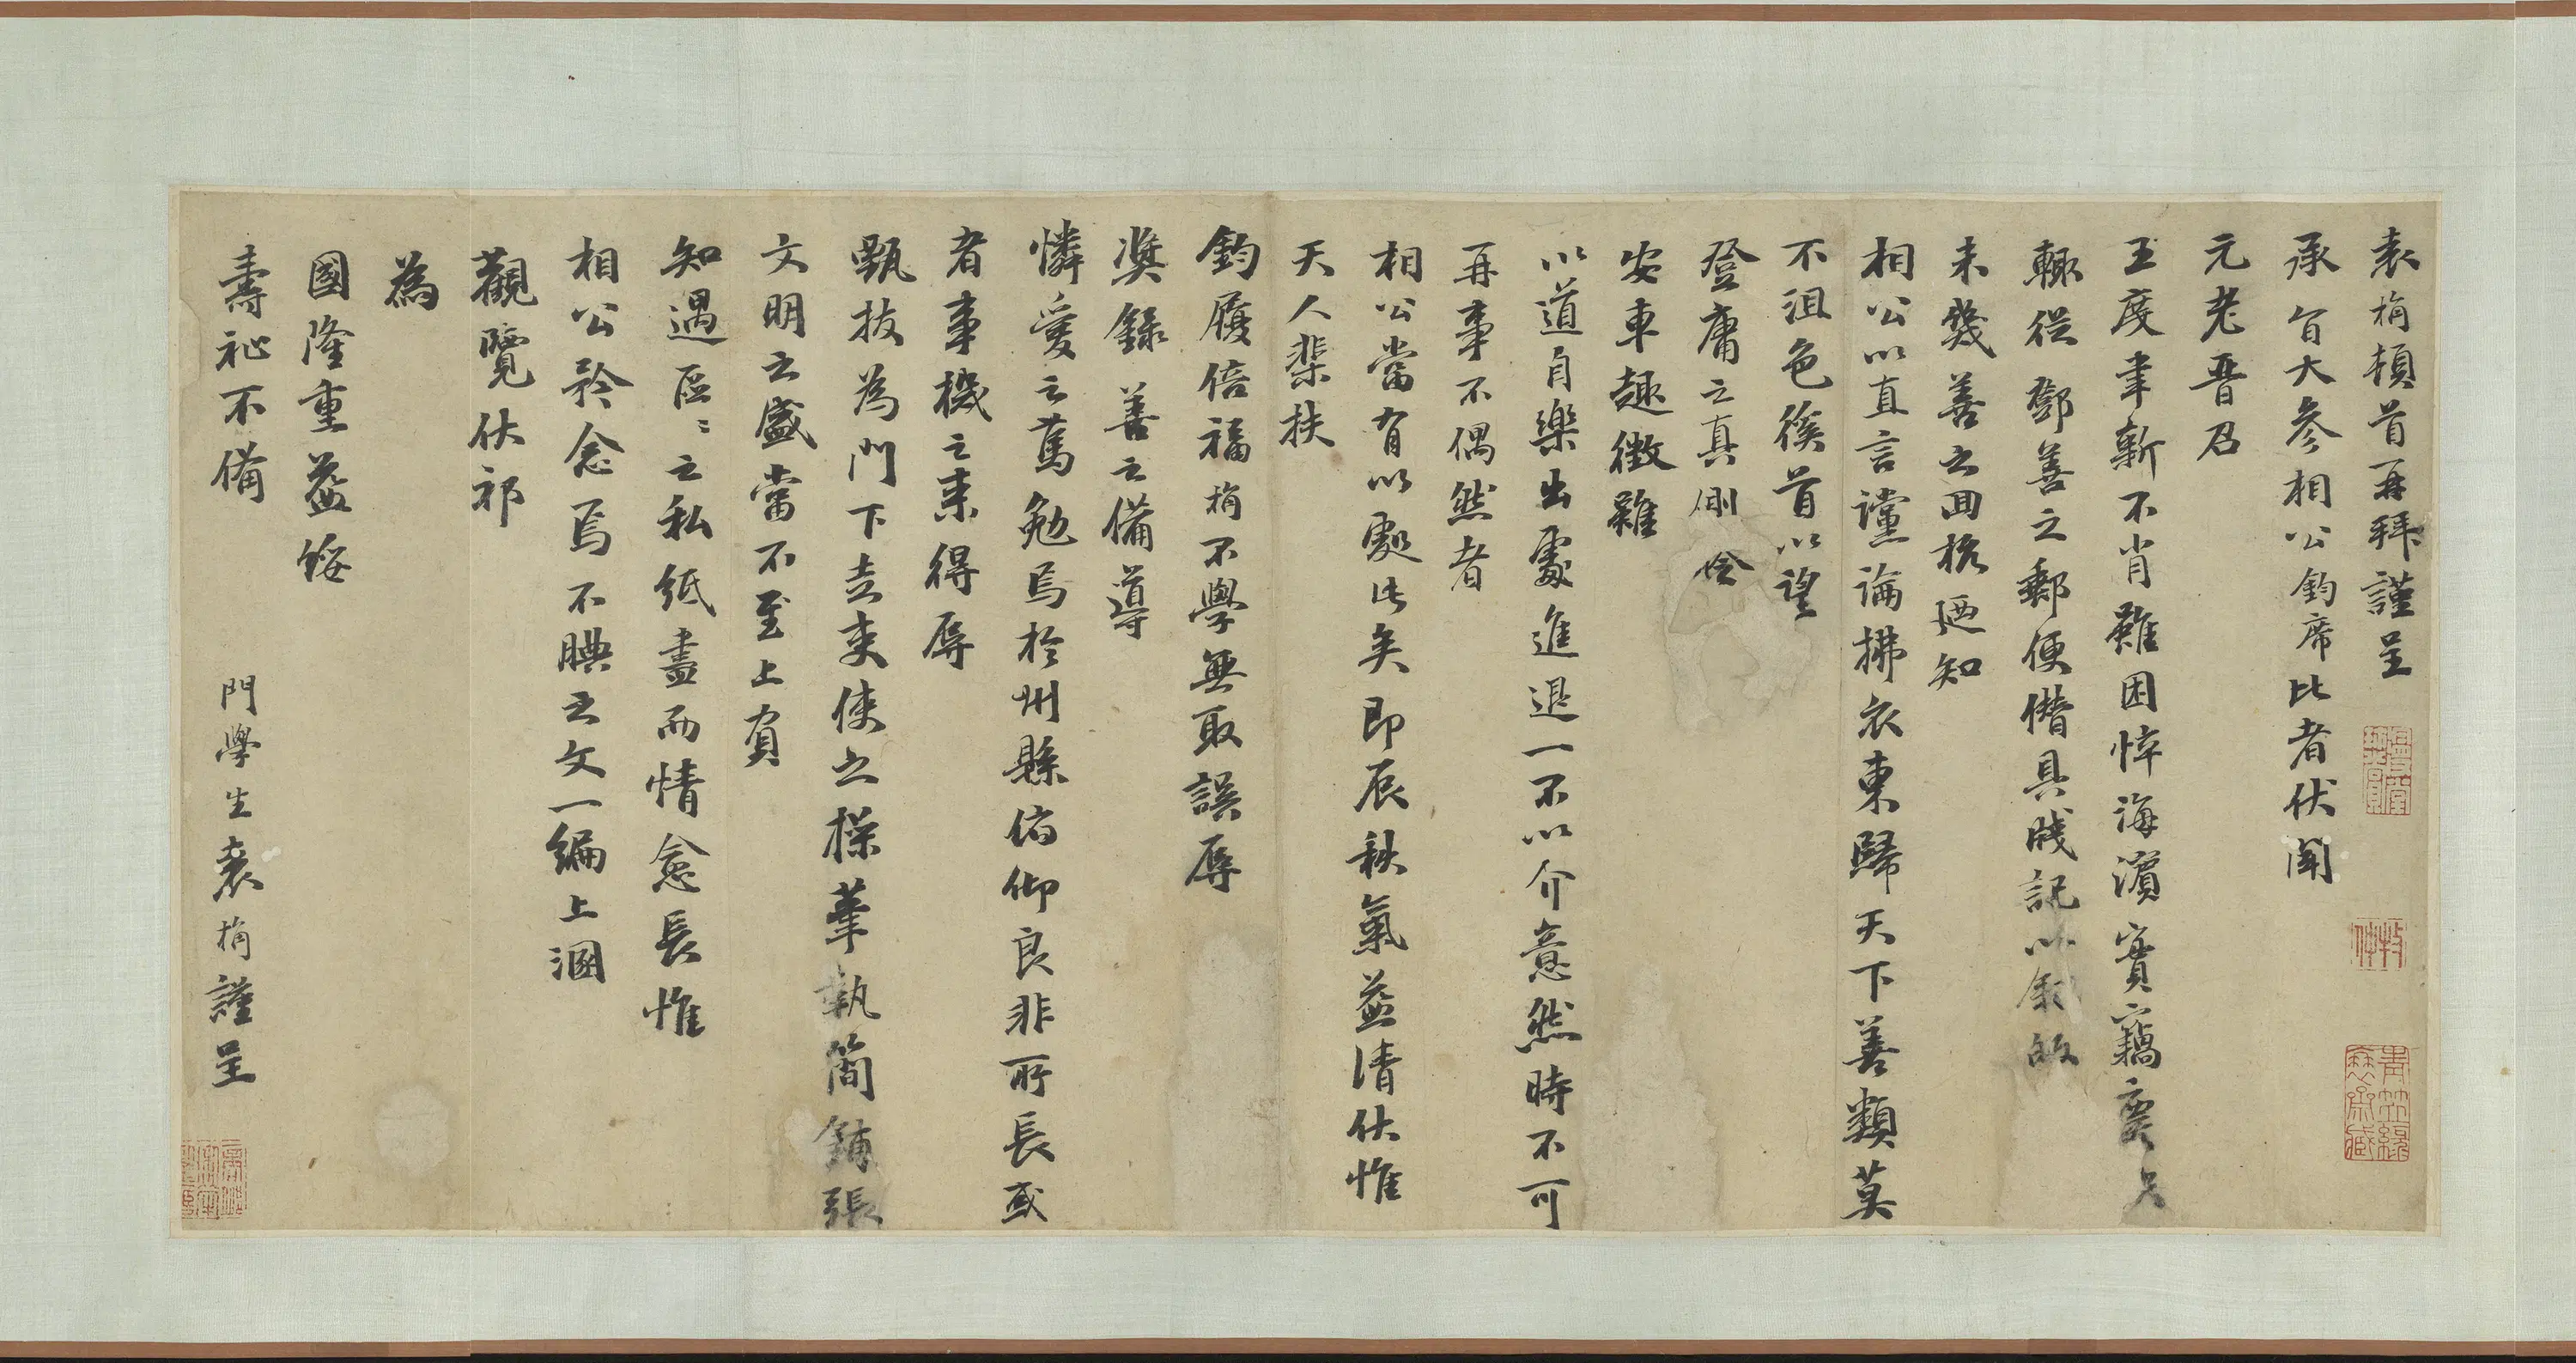 袁桷頓首再拜謹呈
承旨大參相公鈞席比者伏聞
元老晉召
王度聿新不肖雖困悴海濱實竊慶
輒從鄧善之郵便僭具牋記以敘故
未幾善之回杭廼知
相公以直言讜論拂衣東歸天下善類莫
不沮色徯首以望
登庸之真刪
安車趣徵雖
以道自樂出處進退一不以介意然時不可
再事不偶然者
相公當有以處此矣即辰秋氣益清伏惟
天人棐扶
鈞履倍福桷不學無取誤辱
奬錄善之備導
憐愛之舊勉焉於州縣俯仰良非所長或
者事機之來得辱
甄拔為門下走吏使之操筆執簡鋪張
文明之盛當不至上負
知遇區〻之私紙盡而情愈長惟
相公矜念焉不腆之文一編上溷
觀覽伏祈
為
國隆重益綏
壽祉不備
門學生袁桷謹呈